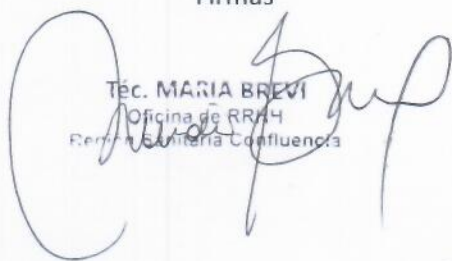 Firmas
Téc. MARIA BREVI
Oficina de RRHH
Región Sanitaria Confluencia